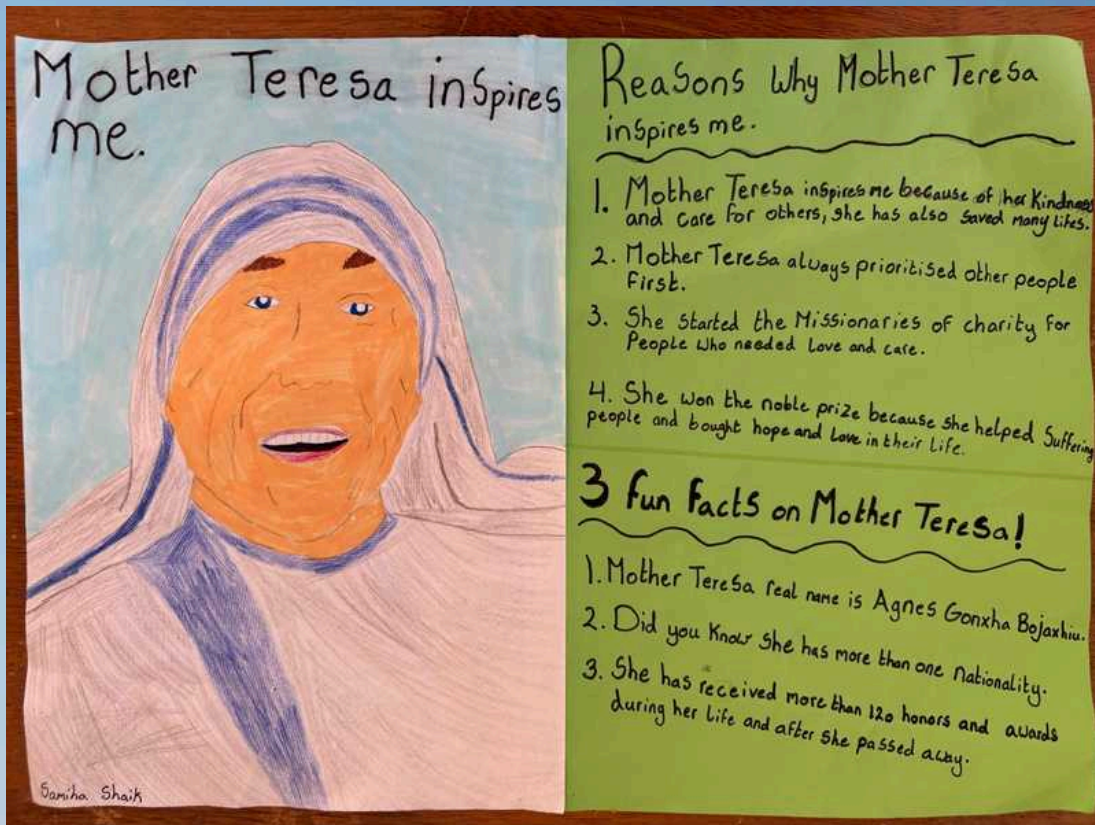 Mother Teresa inspires
me.
Samiha Shaik
Reasons Why Mother Teresa
inspires me.
1. Mother Teresa inspires me because of her Kindness
and care for others, she has also saved many lifes.
2. Mother Teresa always prioritised other people
First.
3. She started the Missionaries of charity for
People who needed Love and care.
4. She won the noble prize because she helped Suffering
people and bought hope and Love in their Life.
3 fun facts on Mother Teresa!
1. Mother Teresa real name is Agnes Gonxha Bojaxhiu.
2. Did you Know she has more than one nationality.
3. She has received more than 120 honors and awards
during her life and after she passed away.